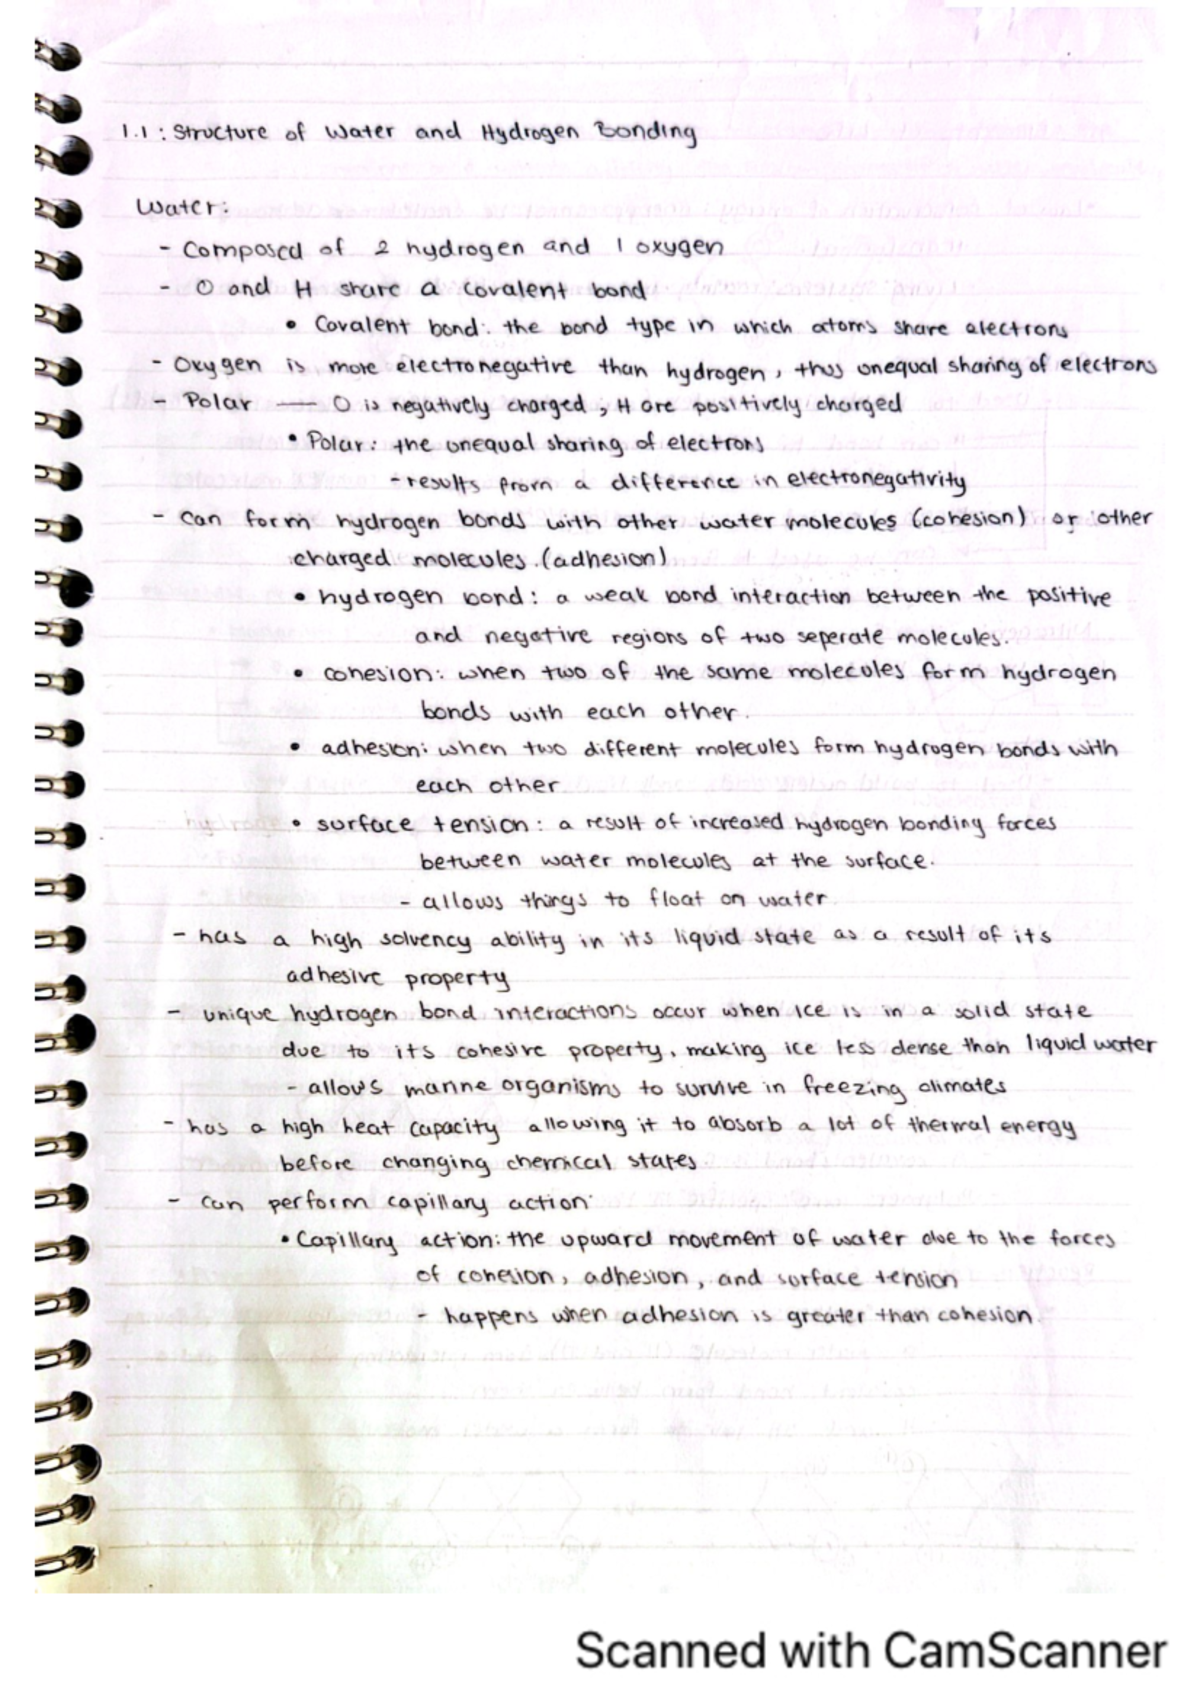 1.1: Structure of Water and Hydrogen Bonding
Water:
- Composed of 2 hydrogen and 1 oxygen
- O and H share a covalent bond
• Covalent bond: the bond type in which atoms share electrons
- Oxygen is more electronegative than hydrogen, thus unequal sharing of electrons
- Polar — O is negatively charged, H are positively charged
• Polar: the unequal sharing of electrons
- results from a difference in electronegativity
- can form hydrogen bonds with other water molecules (cohesion) or other
charged molecules (adhesion)
• hydrogen bond: a weak bond interaction between the positive
and negative regions of two seperate molecules.
• cohesion: when two of the same molecules form hydrogen
bonds with each other.
• adhesion: when two different molecules form hydrogen bonds with
each other
• surface tension: a result of increased hydrogen bonding forces
between water molecules at the surface.
- allows things to float on water
- has a high solvency ability in its liquid state as a result of its
adhesive property
- unique hydrogen bond interactions occur when ice is in a solid state
due to its cohesive property, making ice less dense than liquid water
- allows marine organisms to survive in freezing climates
- has a high heat capacity allowing it to absorb a lot of thermal energy
before changing chemical states
- can perform capillary action
• Capillary action: the upward movement of water due to the forces
of cohesion, adhesion, and surface tension
- happens when adhesion is greater than cohesion.
Scanned with CamScanner